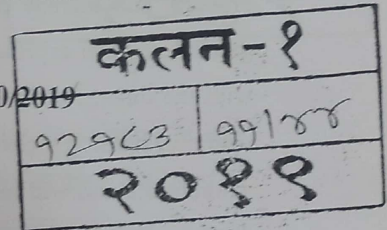 कलन-१
0/2019
१२१८३ ११/४४
२०१९